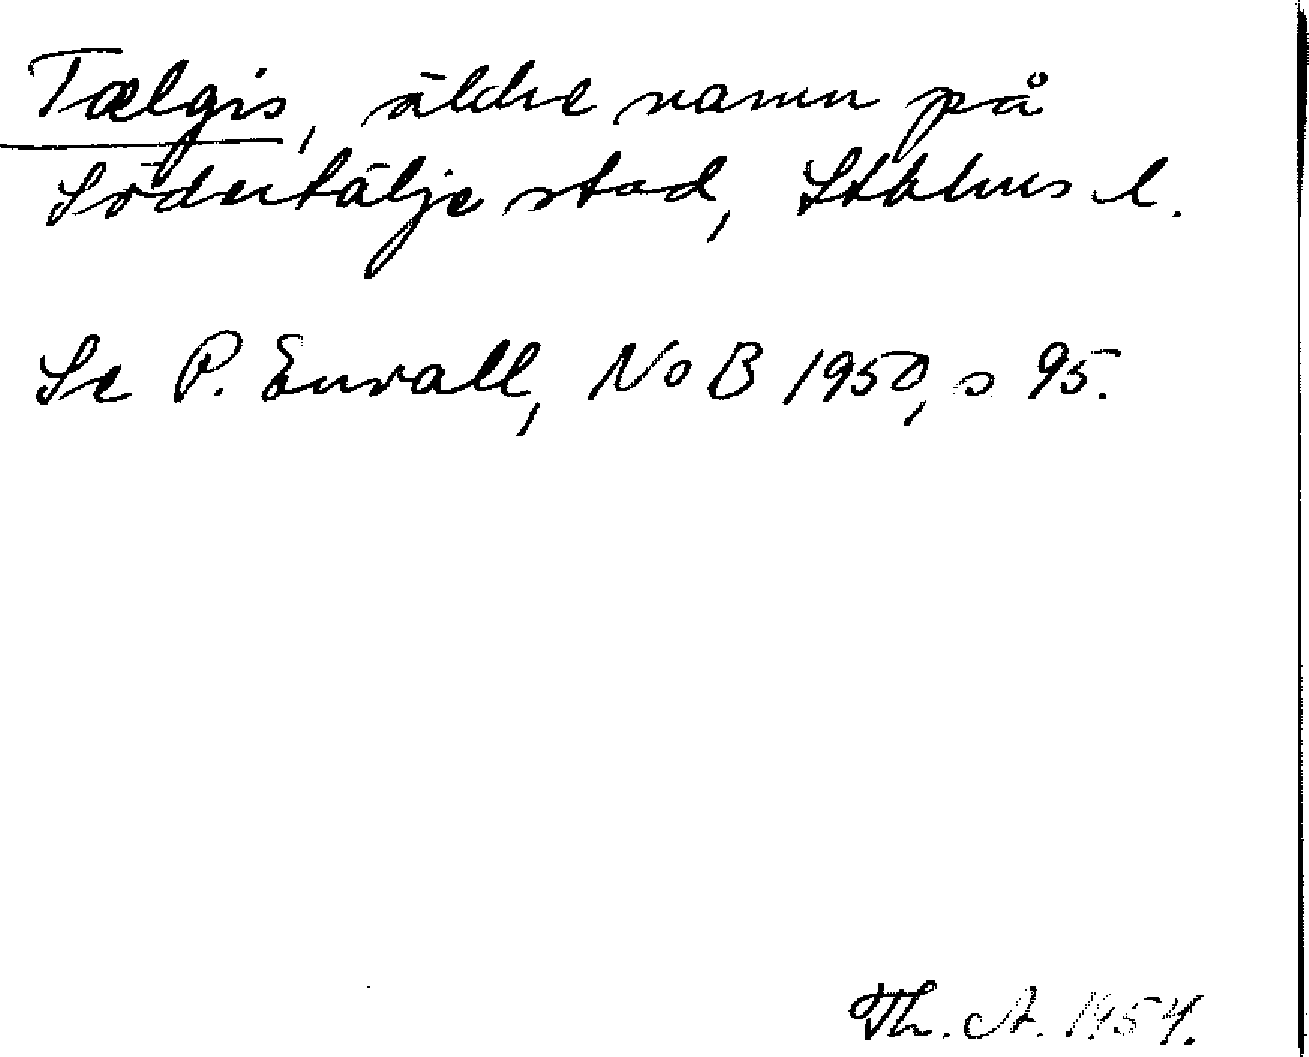 Tælgis, äldre namn på
Södertälje stad, Sthlms l.
Se P. Envall, NoB 1950, s 95.
Th. A. 1954.